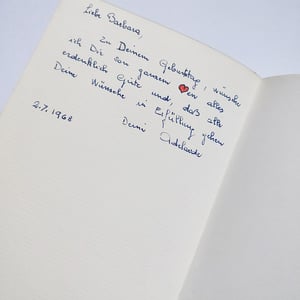 Liebe Barbara,
Zu Deinem Geburtstag, wünsche
ich Dir von ganzem ❤en alles
erdenklich Gute und, daß alle
Deine Wünsche in Erfüllung gehen
2.7.1968 Deine Adelaide